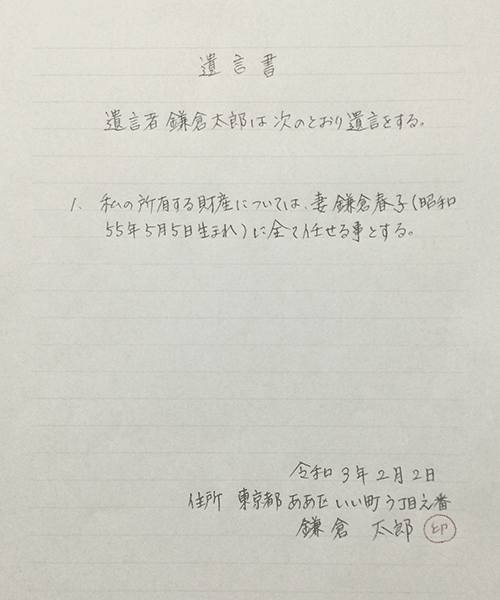 遺言書
遺言者 鎌倉太郎は次のとおり遺言をする。
1、私の所有する財産については、妻 鎌倉春子(昭和
55年5月5日生まれ)に全て任せる事とする。
令和3年2月2日
住所 東京都ああ区いい町う丁目え番
鎌倉 太郎 印